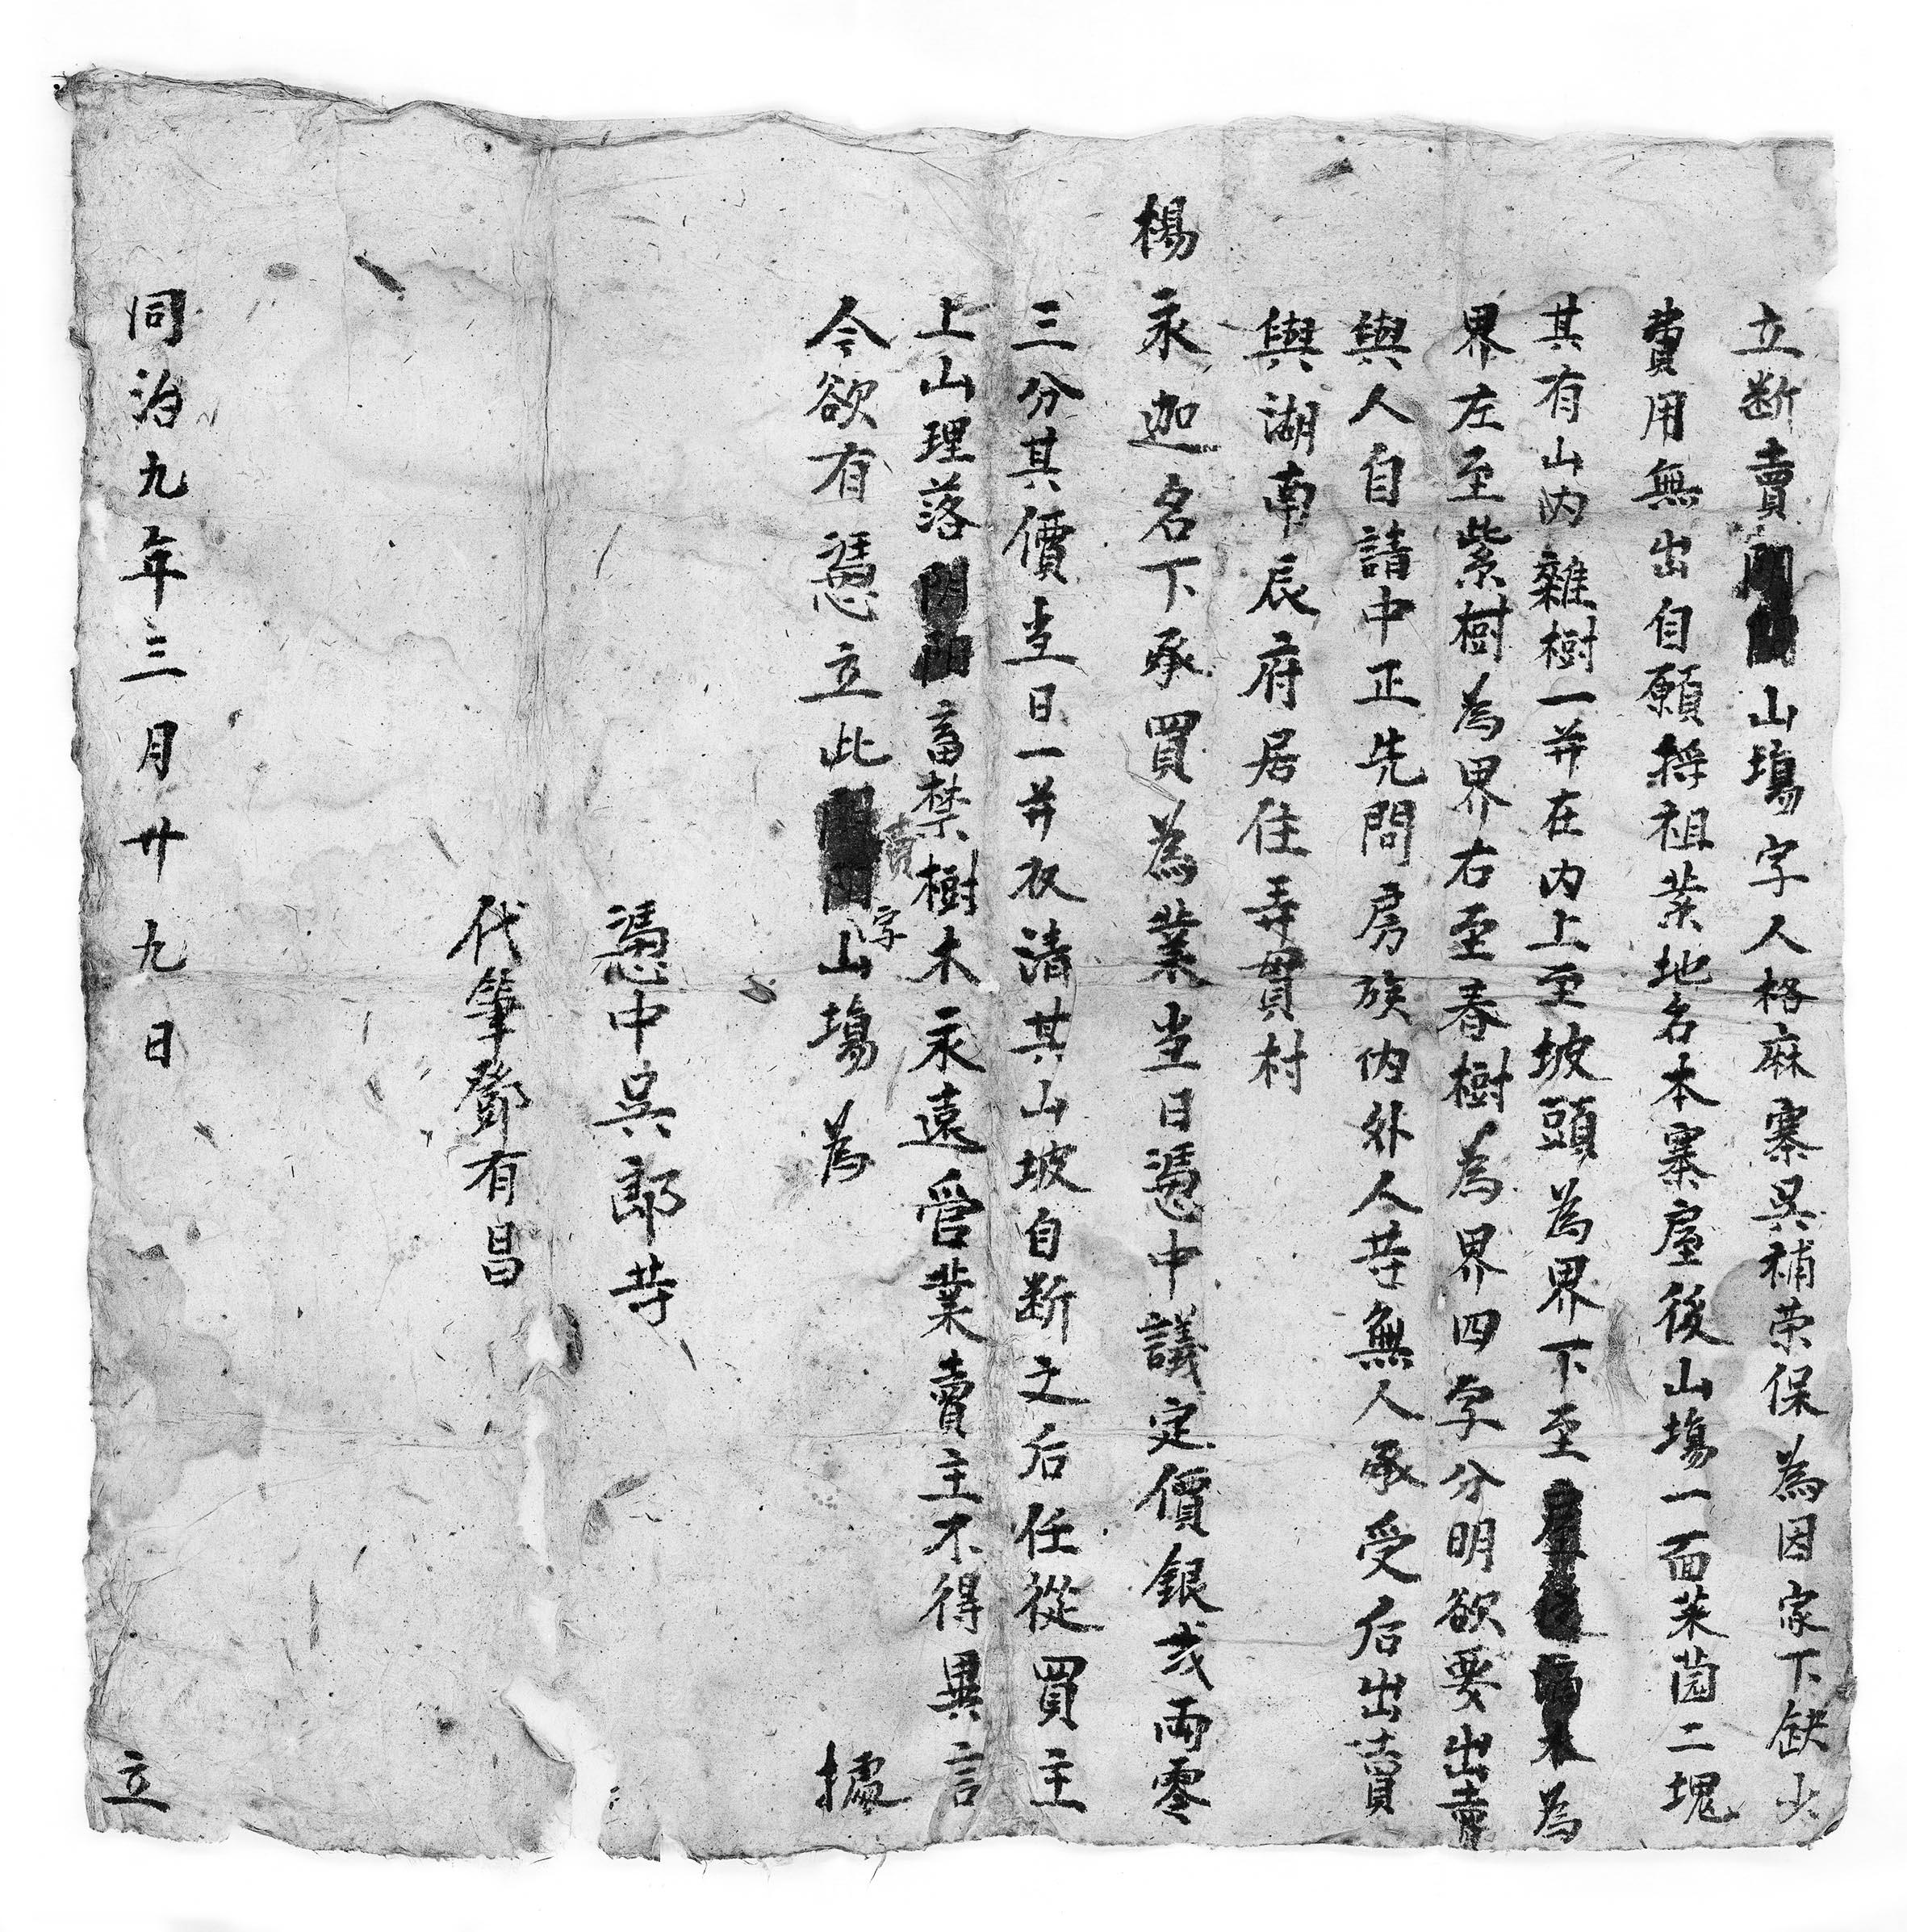 立断賣山塲字人格麻寨吳補荣保為因家下缺少
費用無出自願将祖業地名本寨屋後山塲一面菜园二塊
其有山内雜樹一并在内上至坡頭為界下至為
界左至紫樹為界右至春樹為界四字分明欲要出賣
與人自請中正先問房族内外人等無人承受后出賣
與湖南辰府居住弄貫村
楊永迦名下承買為業当日憑中議定價銀弍両零
三分其價当日一并収清其山坡自断之后任從買主
上山理落畜禁樹木永遠管業賣主不得異言
今欲有憑立此賣字山塲為據
憑中吳郎等
代筆鄧有昌
同治九年三月廿九日立